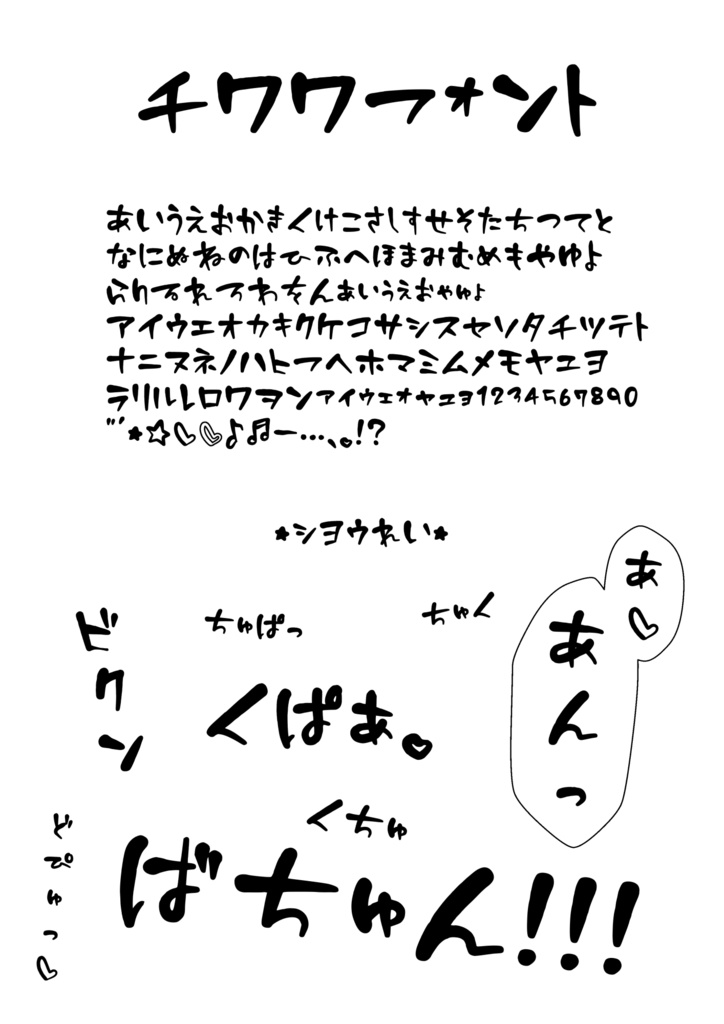 チワワフォント
あいうえおかきくけこさしすせそたちつてと
なにぬねのはひふへほまみむめもやゆよ
らりるれろわをんぁぃぅぇぉゃゅょ
アイウエオカキクケコサシスセソタチツテト
ナニヌネノハヒフヘホマミムメモヤユヨ
ラリルレロワヲンァィゥェォャュョ1234567890
"゛*☆♡♡♪♬ー…、。!?
*シヨウれい*
あ♡
あんっ
ビクン
ちゅぱっ
ちゅく
くぱぁ。♡
くちゅ
どぴゅっ♡
ばちゅん!!!